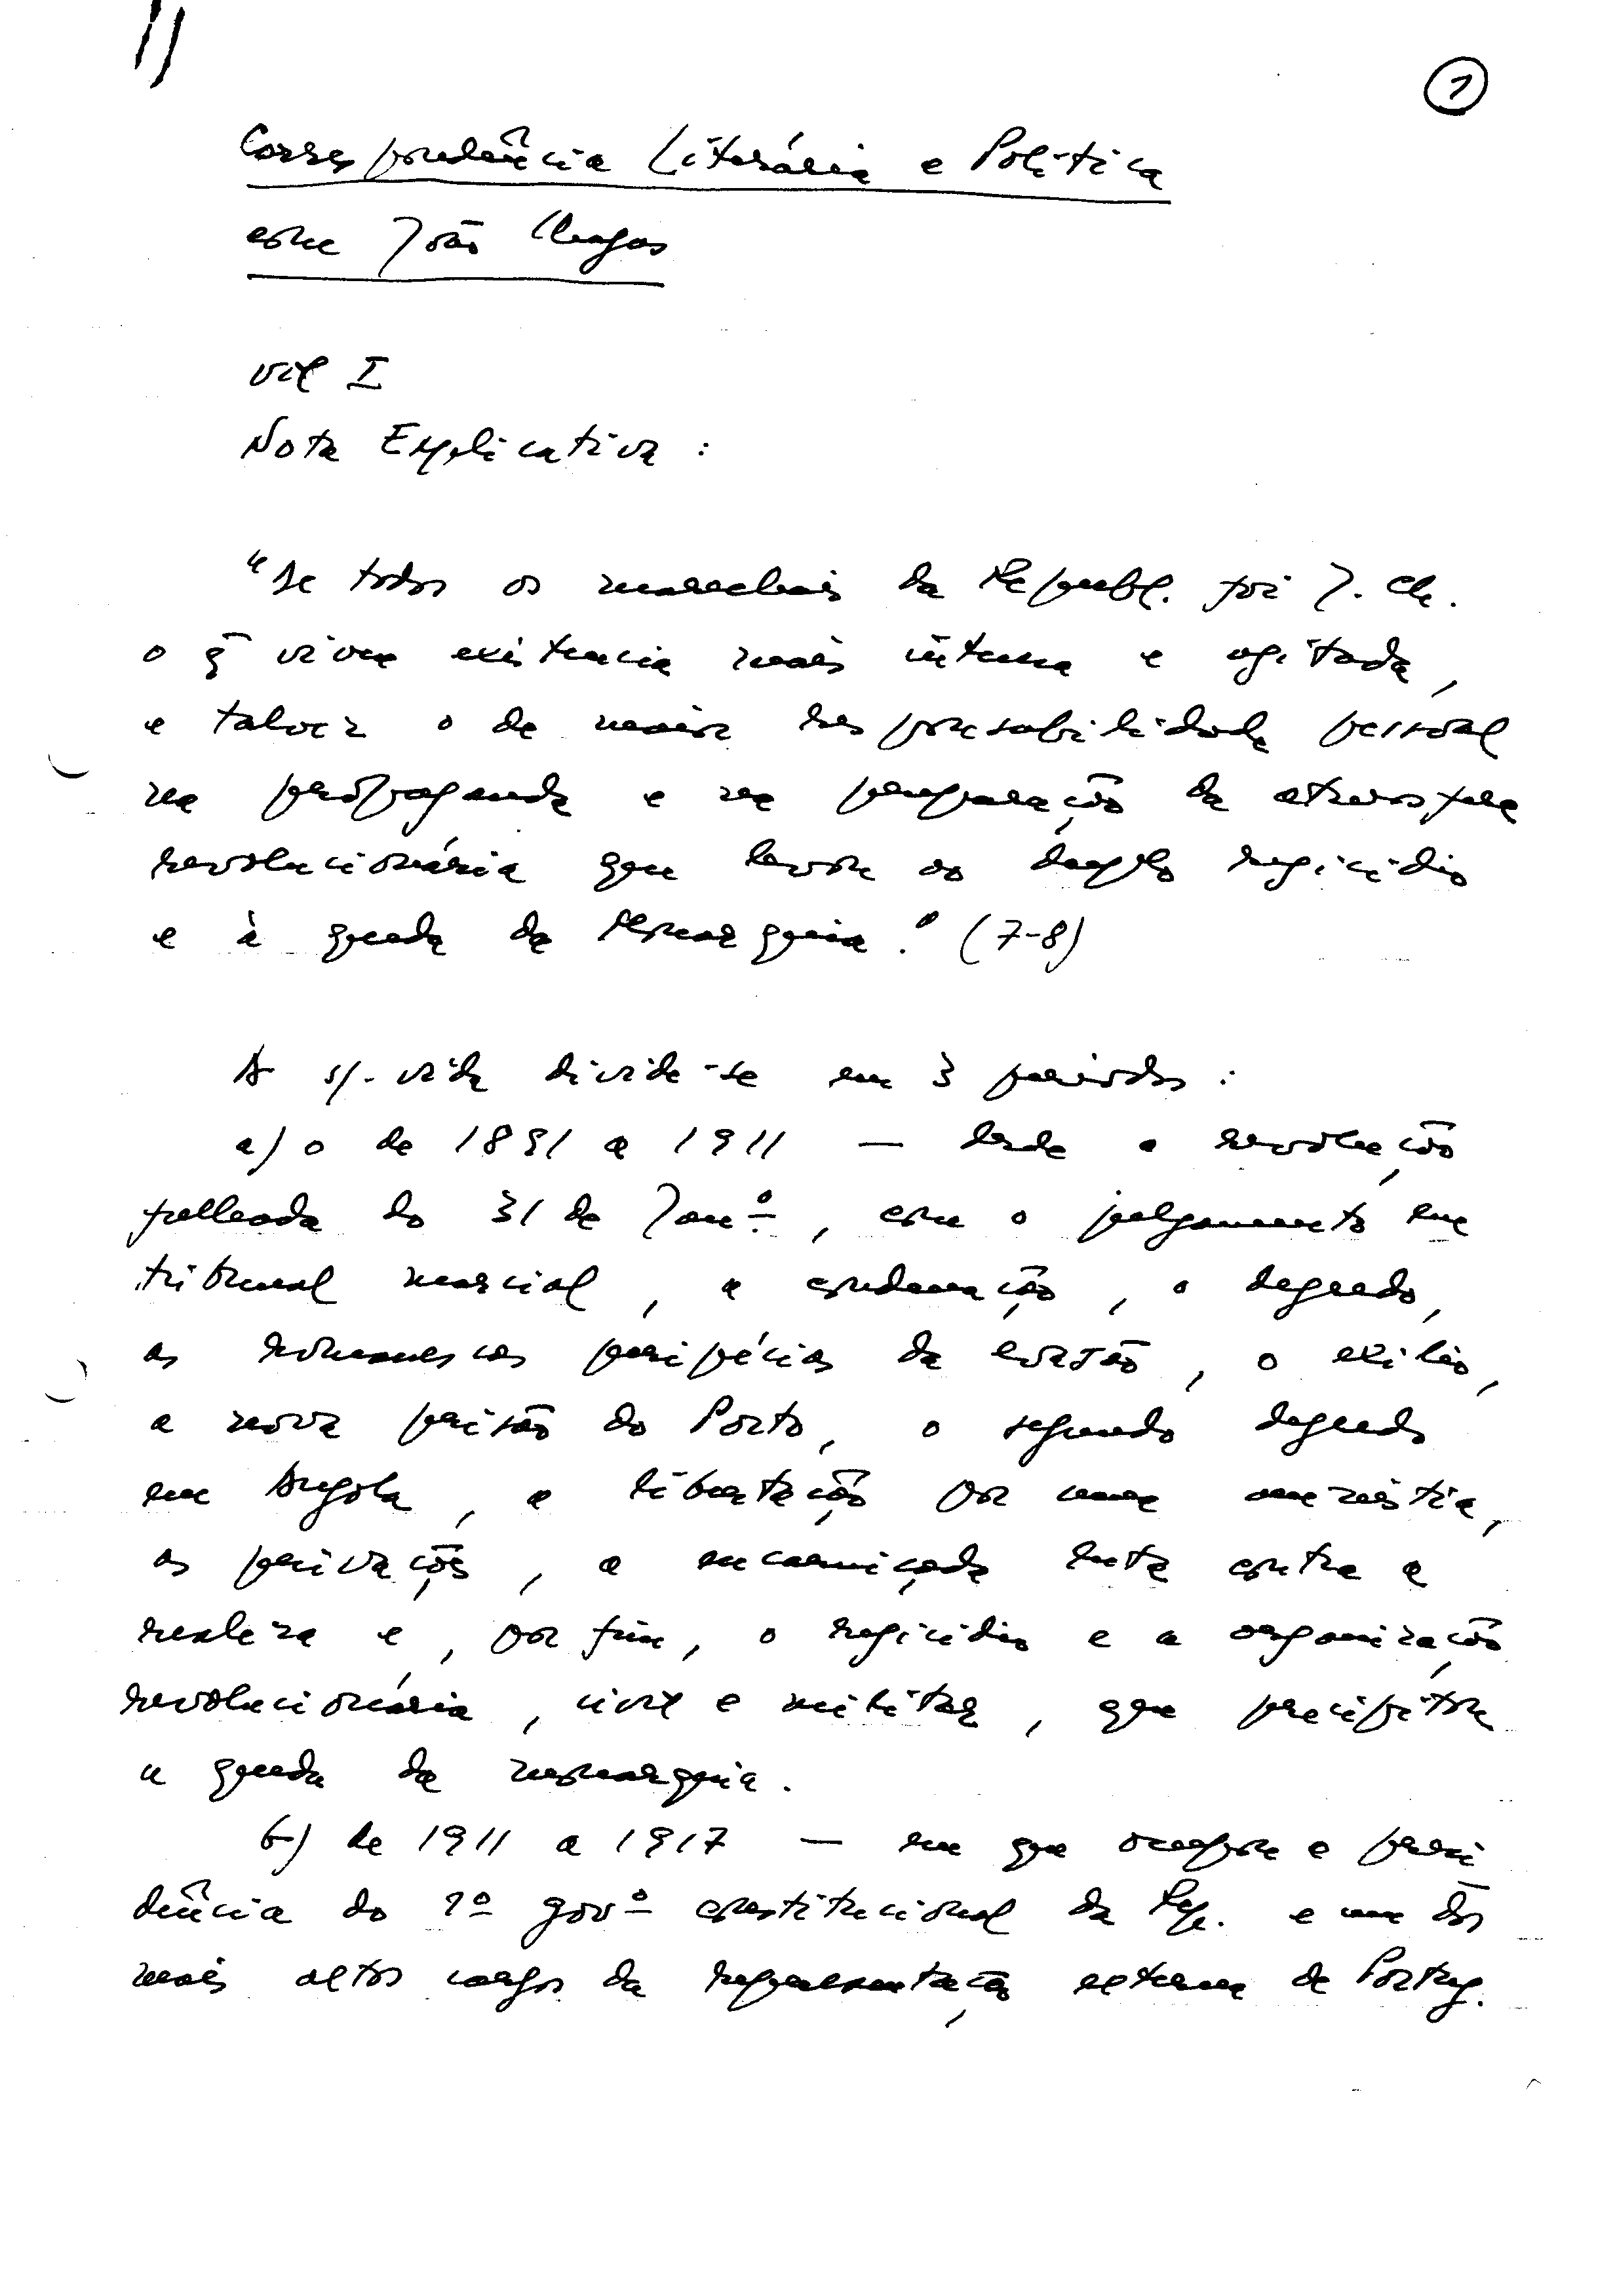 1
Correspondência Literária e Política
com João Chagas
vol I
Nota Explicativa :
"De todos os marechais da Republ. foi J. Ch.
o q̃ viveu existencia mais intensa e agitada,
e talvez o de maior responsabilidade pessoal
na propaganda e na preparação da atmosfera
revolucionária que levou ao duplo regicídio
e à queda da Monarquia." (7-8)
A s/. vida divide-se em 3 periodos :
a) o de 1891 a 1911 — desde a revolução
falhada do 31 de Janº, com o julgamento em
tribunal marcial, a condenação, o degredo,
as romanescas peripécias da evasão, o exílio,
a nova prisão do Porto, o segundo degredo
em Angola, a libertação por uma amnistia,
as privações, a encarniçada luta contra a
realeza e, por fim, o regicídio e a organização
revolucionária, civil e militar, que precipitou
a queda da monarquia.
b) de 1911 a 1917 — em que ocupou a presi
dência do 1º govº constitucional da Rep. e um dos
mais altos cargos da representação externa de Portug.